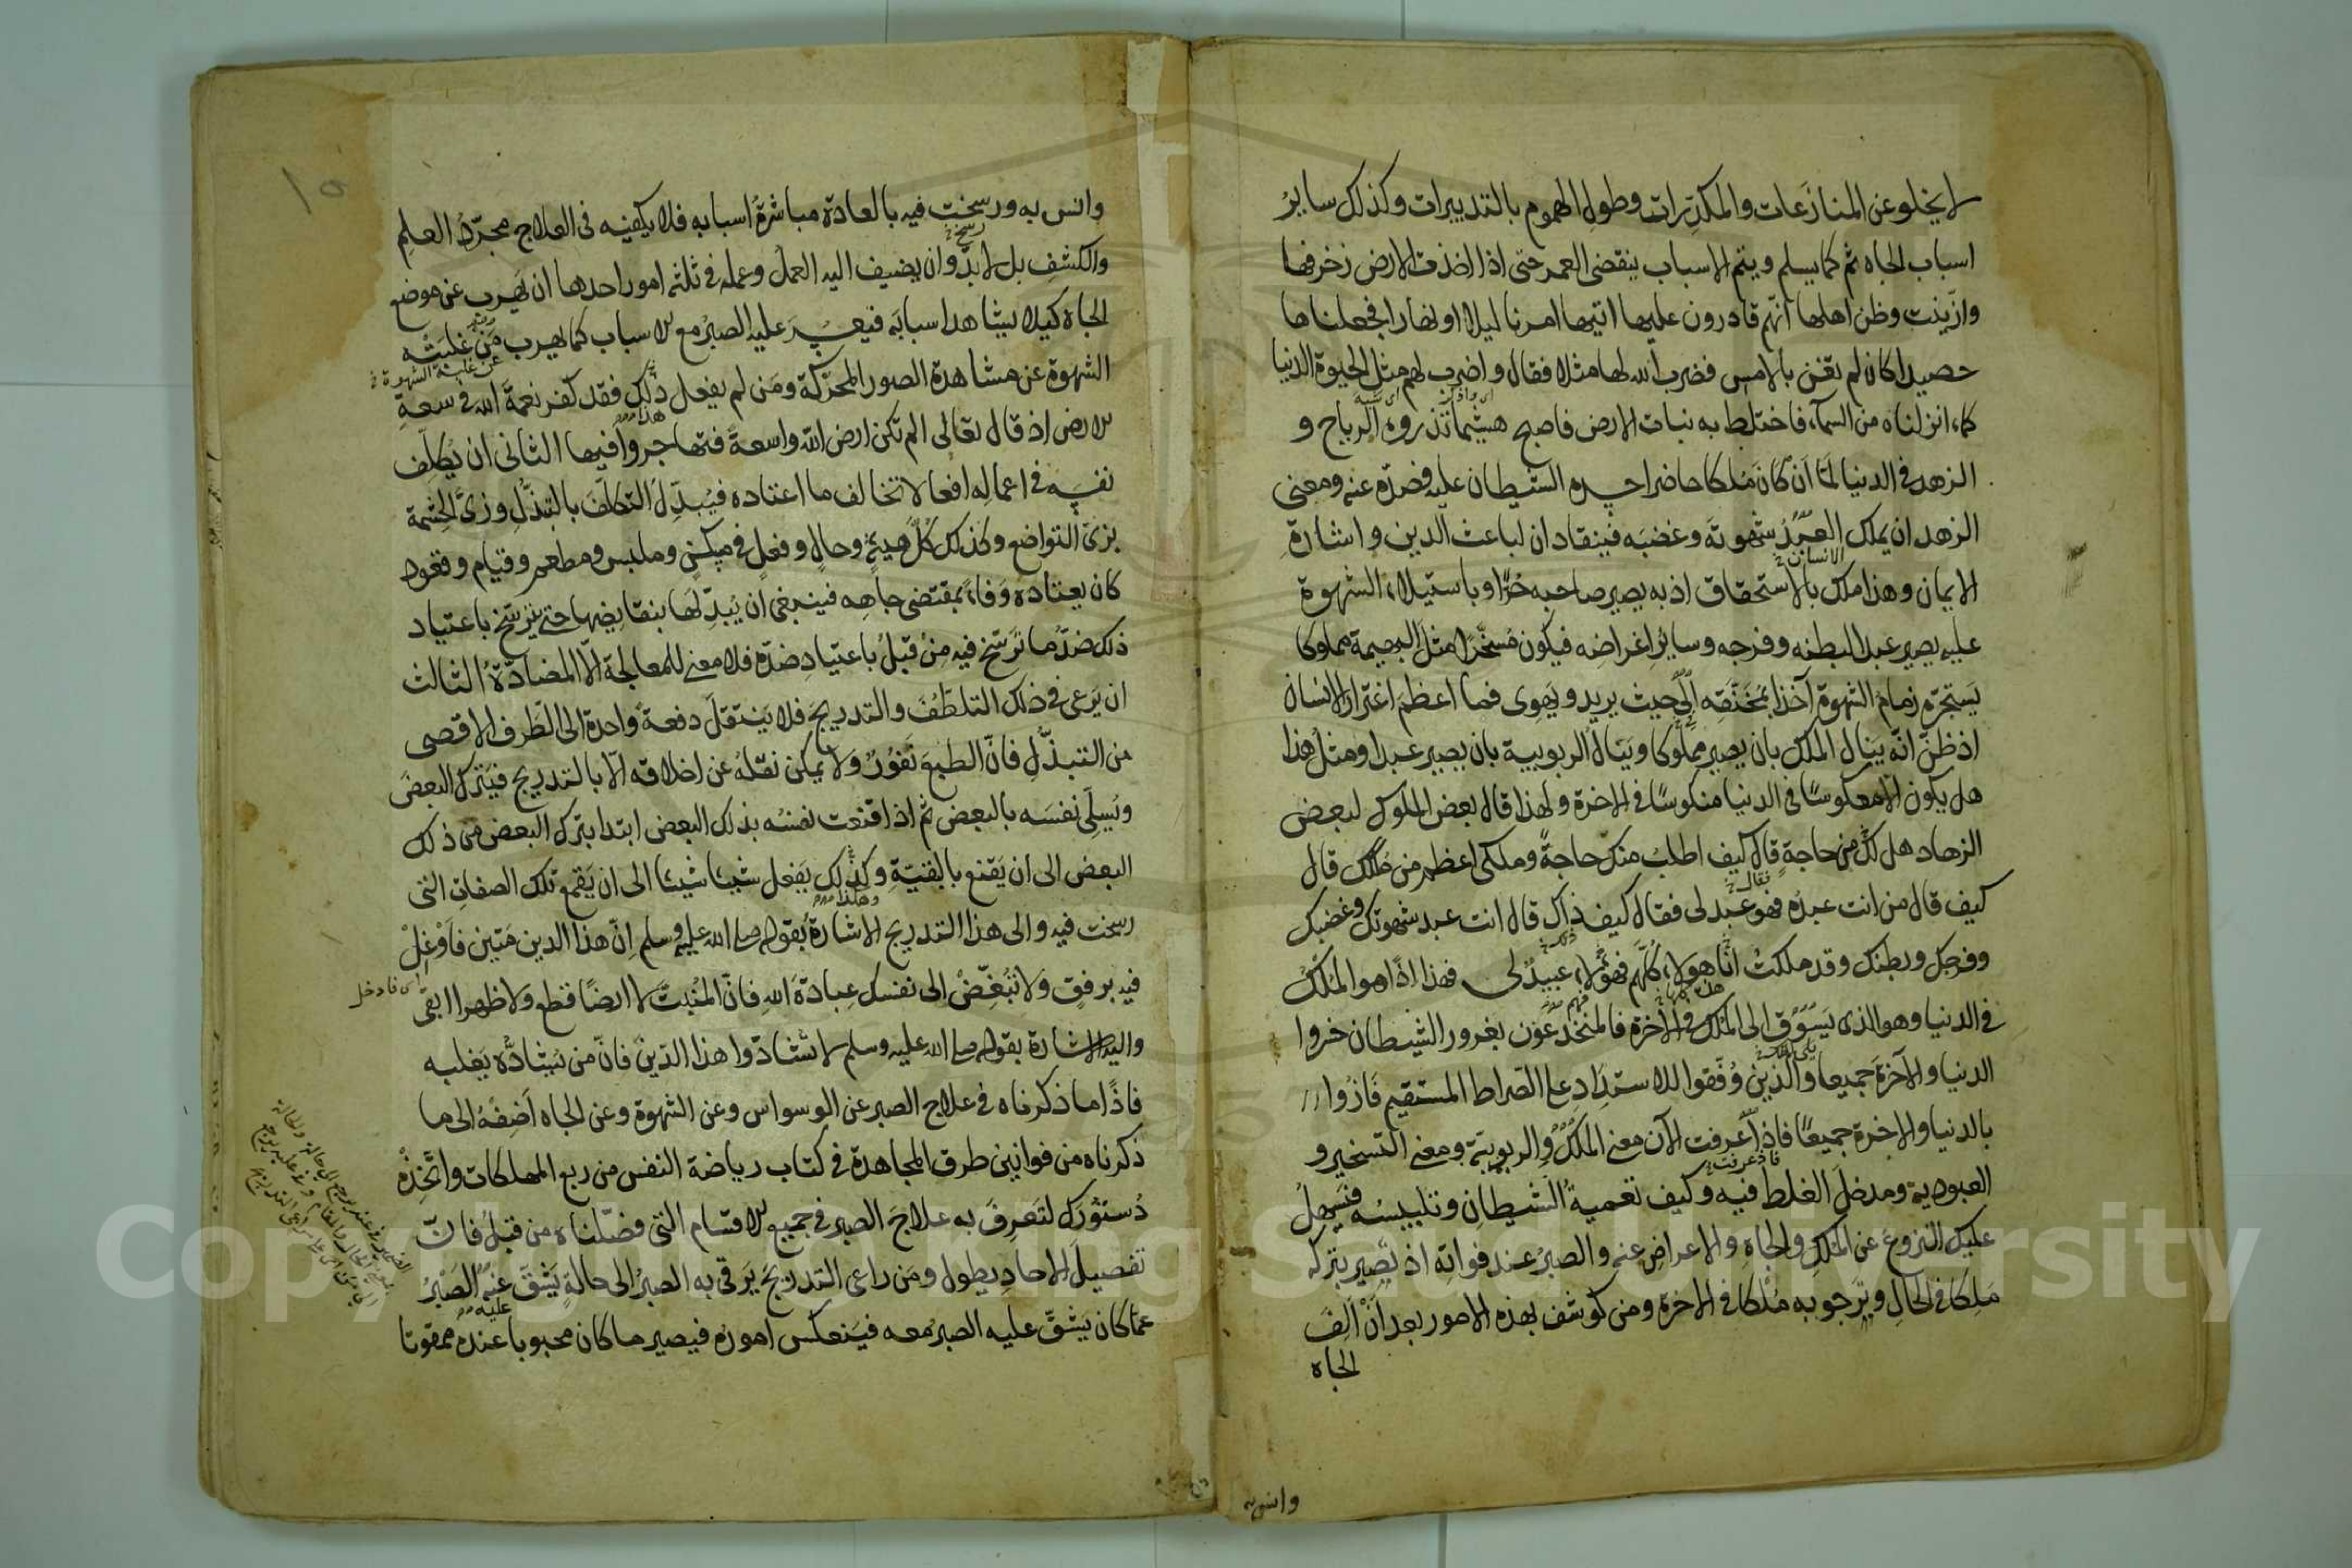 لا يخلو عن المنازعات والمكدّرات وطول الهموم بالتدبيرات وكذلك ساير
اسباب الجاه ثم كما يسلم ويتم الاسباب ينقضى العمر حتى اذا اخذت الارض زخرفها
وازّينت وظن اهلها انّهم قادرون عليها اتيها امرنا ليلا او نهارا فجعلناها
حصيدا كان لم تغن بالامس فضرب الله لها مثلا فقال واضرب لهم مثل الحيوة الدنيا
كماء انزلناه من السمآء فاختلط به نبات الارض فاصبح هشيما تذروه الرياح و
الزهد فى الدنيا لمّا ان كان مُلكا حاضرا حسده الشيطان عليه فصدّه عنه ومعنى
الزهد ان يملك العبد شهوته وغضبه فينقادان لباعث الدين واشارة
الانسان
الايمان وهذا ملك بالاستحقاق اذ به يصير صاحبه حُرّا وباستيلاء الشهوة
عليه يصير عبدا لبطنه وفرجه وساير اغراضه فيكون مُسَخّرا مثل البهيمة مملوكا
يَستجرّه زمام الشهوة آخذا بمُخَنَّقِه الى حيث يريد ويهوى فما اعظم اغترار الانسان
اذ ظنّ انّه ينال الملك بان يصير مملوكا وينال الربوبية بان يصير عبدا ومثل هذا
هل يكون الّا معكوسًا فى الدنيا منكوسًا فى الاخرة ولهذا قال بعض الملوك لبعض
الزهاد هل لك من حاجةٍ قال كيف اطلبُ منك حاجةً وملكى اعظم من ملكك قال
فقال
كيف قال من انت عبدُه فهو عبد لى فقال كيف ذاك قال انت عبد شهوتك وغضبك
وفرجك وبطنك وقد ملكتُ انا هولاء كلّهم فهؤلاء عبيدٌ لى فهذا اذًا هو المُلك
فى الدنيا وهو الذى يَسُوق الى الملك فى الآخرة فالمنخدعون بغرور الشيطان خسروا
الدنيا والآخرة جميعا والّذين وُفّقوا للاستداد على الصراط المستقيم فازُوا
بالدنيا والاخرة جميعًا فاذا عرفت الآن معنى الملك والربوبيّة ومعنى التسخير و
فاذ عرفت
العبودية ومدخل الغلط فيه وكيف تعميةُ الشيطان وتلبيسُه فيسهلُ
عليك النزوعُ عن الملك والجاهِ والاعراض عنه والصبرُ عند فواته اذ يصير بتركه
مَلِكا فى الحال ويرجو به مُلكا فى الاخرة ومن كوشف بهذه الامور بعد ان الف
الجاه
وانس به
وانس به ورسخت فيه بالعادة مباشرةُ اسبابه فلا يكفيه فى العلاج مجرّد العلمِ
والكشفِ بل لا بدّ وان يضيف اليه العمل وعمله فى ثلثة امور احدها ان يهرب عن موضع
الجاه كيلا يشاهد اسبابَه فيعسُر عليه الصبرُ مع الاسباب كما يهرب مَن غلبته
عن غلبة الشهوة
الشهوة عن مشاهدة الصور المحرّكة ومَن لم يفعل ذلك فقد كفر نعمة الله فى سعةِ
هذا
الارض اذ قال تعالى الم تكن ارض الله واسعةً فتهاجروا فيها الثانى ان يُكلّف
نفسَه فى اعماله افعالا تخالف ما اعتاده فيُبدّل التكلّفَ بالتبذّلِ وزىّ الحِشْمة
بزىّ التواضع وكذلك كلّ هيئةٍ وحالٍ وفعلٍ فى مسكنٍ وملبس ومطعم وقيام وقعود
كان يعتاده وَفاءً بمقتضى جاهه فينبغى ان يُبدّلها بنقايضها حتى يترسّخ باعتياد
ذلك ضدُّ ما ترسّخ فيه مِنْ قبلُ باعتيادِ ضدّه فلا معنى للمعالجة الّا المضادّة الثالث
ان يَرعى فى ذلك التلطّف والتدريجَ فلا يَنتقل دفعةً واحدة الى الطَرف الاقصى
من التبذّلِ فانّ الطبعَ نَفورٌ ولا يمكن نقلهُ عن اخلاقه الّا بالتدريج فيترك البعضَ
ويُسلّى نفسَه بالبعض ثم اذا قنعت نفسُه بذلك البعض ابتدا بترك البعض من ذلك
البعض الى ان يَقنع بالبقيّةِ وكذلك يَفعل شيئا شيئا الى ان يَقمع تلك الصفاتِ التى
وهكذا
رسخت فيه والى هذا التدريج الاشارةُ بقوله صلى الله عليه وسلم انّ هذا الدين مَتين فَاَوْغِلْ
اى فادخل
فيه برفقٍ ولا تُبغّضْ الى نفسك عِبادةَ اللهِ فانّ المُنبتّ لا ارضًا قطع ولا ظهرا ابقى
واليه الاشارة بقوله صلى الله عليه وسلم لا تشادّوا هذا الدّينَ فانّ من يُشادُّه يَغلبه
فاذًا ما ذكرناه فى علاج الصبر عن الوسواس وعن الشهوة وعن الجاه اَضِفْهُ الى ما
ذكرناه من قوانين طرق المجاهدة فى كتاب رياضة النفس من ربع المهلكات واتَّخِذْهُ
دُستورك لتَعرِفَ به علاجَ الصبر فى جميع الاقسام التى فصّلناه من قبلُ فانّ
تفصيلَ الاحادِ يطول ومَن راعى التدريجَ يَرقى به الصبرُ الى حالةٍ يَشُقّ عنه الصَبرُ
عليه
عمّا كان يَشقّ عليه الصبرُ معه فيَنعكس امورُه فيصير ما كان محبوبا عنده ممقوتا
Copyright © King Saud University